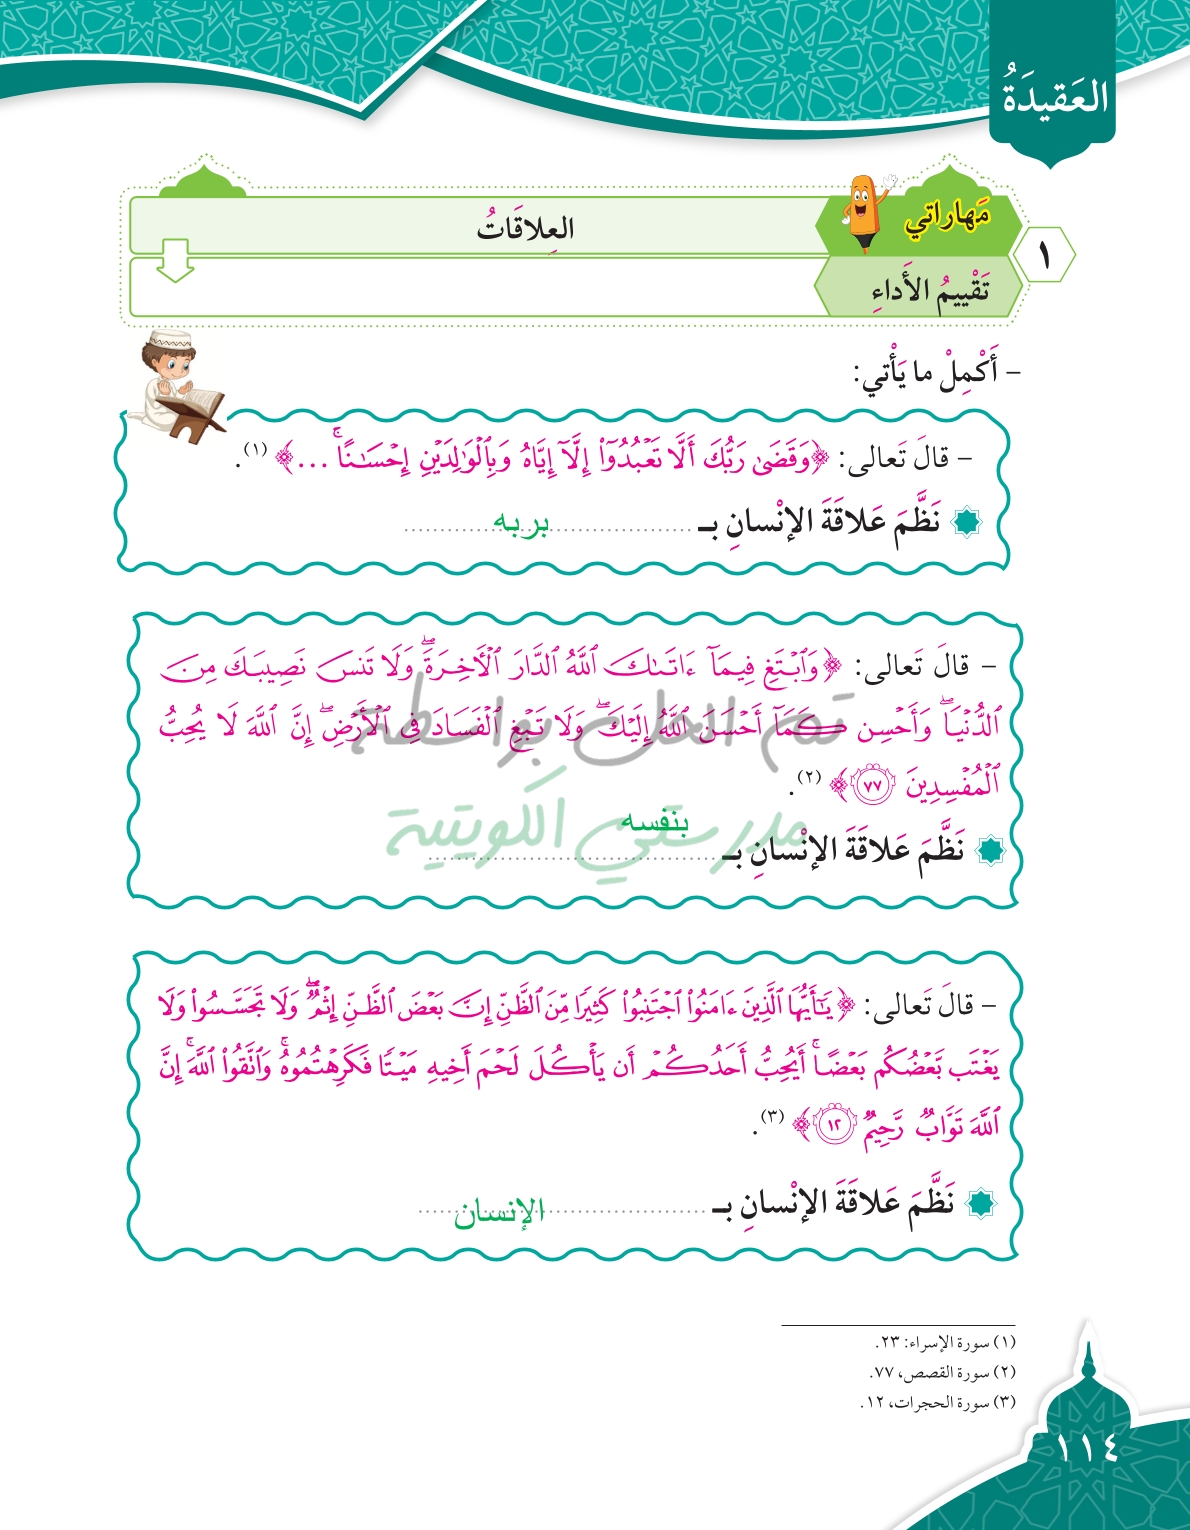 العَقيدَةُ
مَهاراتي
العِلاقَاتُ
١
تَقْييمُ الأَداءِ
– أَكْمِلْ ما يَأْتي:
– قالَ تَعالى: ﴿وَقَضَىٰ رَبُّكَ أَلَّا تَعۡبُدُوٓاْ إِلَّآ إِيَّاهُ وَبِٱلۡوَٰلِدَيۡنِ إِحۡسَٰنًاۚ ...﴾ (١).
نَظَّمَ عَلاقَةَ الإنْسانِ بـ بربه
– قالَ تَعالى: ﴿وَٱبۡتَغِ فِيمَآ ءَاتَىٰكَ ٱللَّهُ ٱلدَّارَ ٱلۡأٓخِرَةَۖ وَلَا تَنسَ نَصِيبَكَ مِنَ
ٱلدُّنۡيَاۖ وَأَحۡسِن كَمَآ أَحۡسَنَ ٱللَّهُ إِلَيۡكَۖ وَلَا تَبۡغِ ٱلۡفَسَادَ فِي ٱلۡأَرۡضِۖ إِنَّ ٱللَّهَ لَا يُحِبُّ
تم الحل بواسطة
ٱلۡمُفۡسِدِينَ ٧٧﴾ (٢).
مدرستي الكويتية
نَظَّمَ عَلاقَةَ الإنْسانِ بـ بنفسه
– قالَ تَعالى: ﴿يَٰٓأَيُّهَا ٱلَّذِينَ ءَامَنُواْ ٱجۡتَنِبُواْ كَثِيرٗا مِّنَ ٱلظَّنِّ إِنَّ بَعۡضَ ٱلظَّنِّ إِثۡمٞۖ وَلَا تَجَسَّسُواْ وَلَا
يَغۡتَب بَّعۡضُكُم بَعۡضًاۚ أَيُحِبُّ أَحَدُكُمۡ أَن يَأۡكُلَ لَحۡمَ أَخِيهِ مَيۡتٗا فَكَرِهۡتُمُوهُۚ وَٱتَّقُواْ ٱللَّهَۚ إِنَّ
ٱللَّهَ تَوَّابٞ رَّحِيمٞ ١٢﴾ (٣).
نَظَّمَ عَلاقَةَ الإنْسانِ بـ الإنسان
(١) سورة الإسراء: ٢٣.
(٢) سورة القصص، ٧٧.
(٣) سورة الحجرات، ١٢.
١١٤